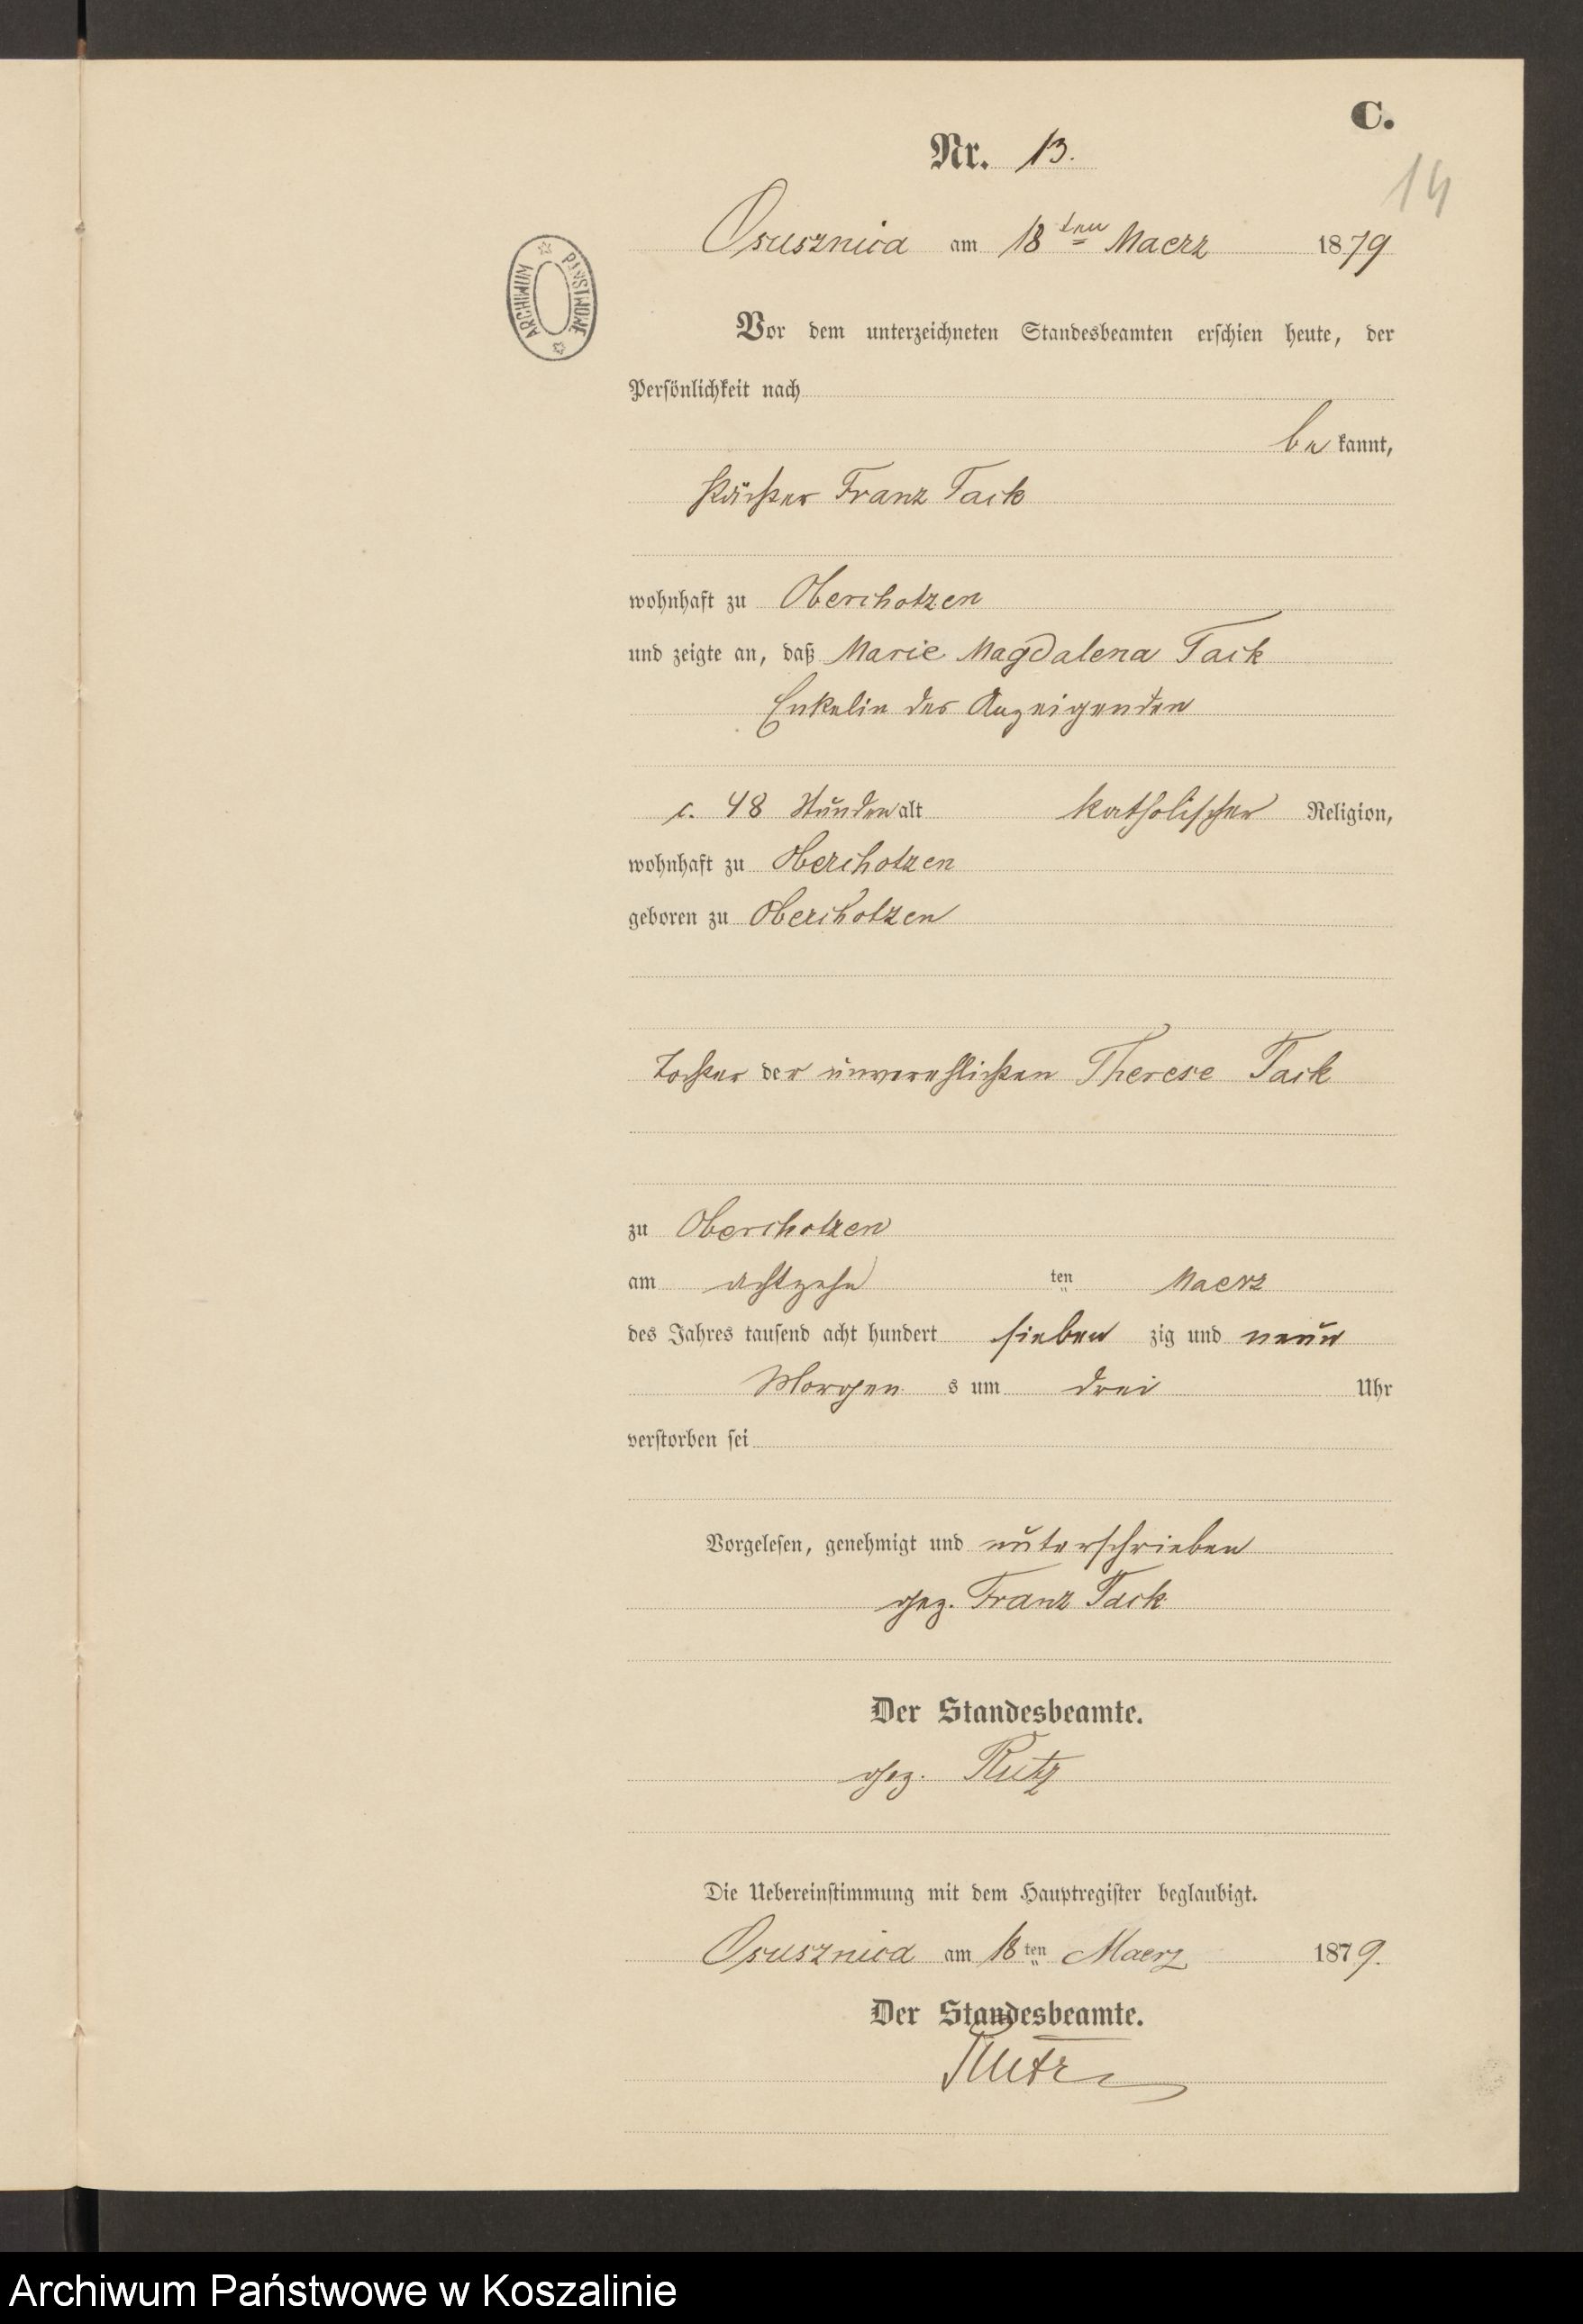 C.
Nr. 13.
14
Osusznica am 18ten Maerz 1879
ARCHIWUM PAŃSTWOWE
Vor dem unterzeichneten Standesbeamten erschien heute, der
Persönlichkeit nach
be kannt,
Pächter Franz Tack
wohnhaft zu Oberchotzen
und zeigte an, daß Marie Magdalena Tack
Enkelin des Anzeigenden
c. 48 Stunden alt katholischer Religion,
wohnhaft zu Oberchotzen
geboren zu Oberchotzen
Tochter der unverehlichten Therese Tack
zu Oberchotzen
am achtzehn ten Maerz
des Jahres tausend acht hundert sieben zig und neun
Morgen s um drei Uhr
verstorben sei
Vorgelesen, genehmigt und unterschrieben
gez. Franz Tack
Der Standesbeamte.
gez. Rutz
Die Uebereinstimmung mit dem Hauptregister beglaubigt.
Osusznica am 18ten Maerz 1879.
Der Standesbeamte.
Rutz
Archiwum Państwowe w Koszalinie